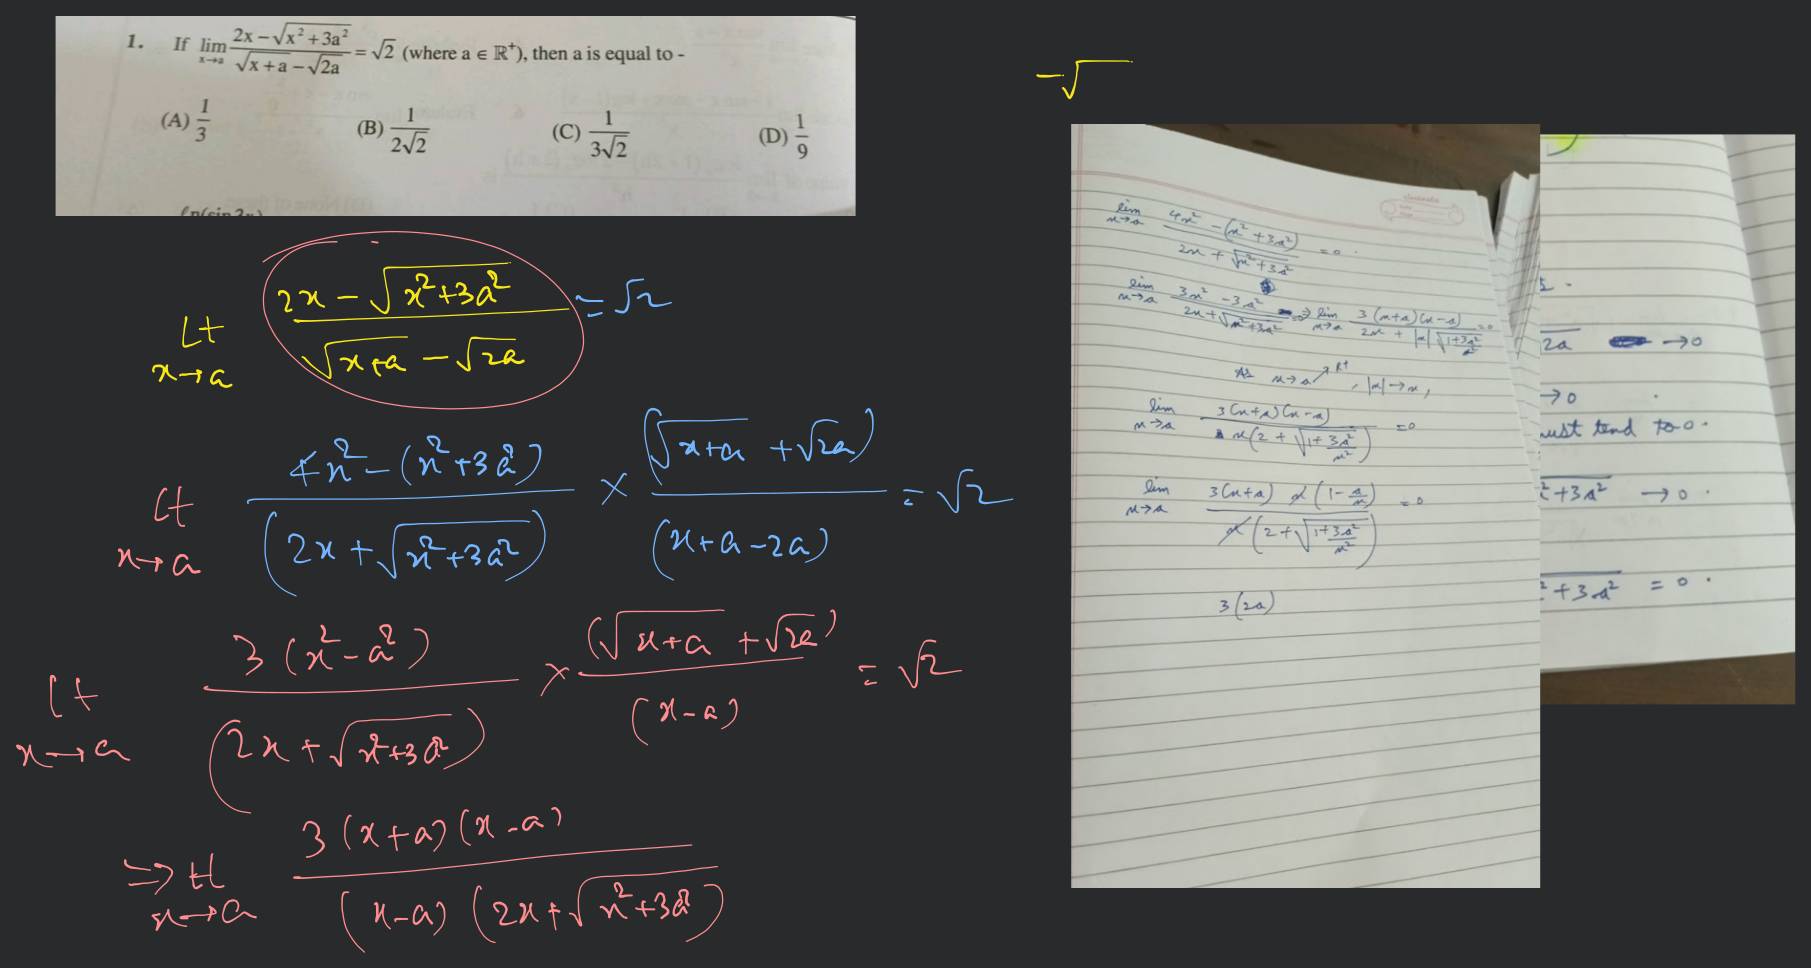 1. If lim x→a (2x − √(x² + 3a²)) / (√(x+a) − √(2a)) = √2 (where a ∈ R⁺), then a is equal to -
(A) 1/3 (B) 1/(2√2) (C) 1/(3√2) (D) 1/9
Lt x→a (2x − √(x²+3a²)) / (√(x+a) − √(2a)) = √2
Lt x→a (4x² − (x²+3a²)) / (2x + √(x²+3a²)) × (√(x+a) + √(2a)) / (x+a−2a) = √2
Lt x→a 3(x²−a²) / (2x + √(x²+3a²)) × (√(x+a) + √(2a)) / (x−a) = √2
⇒ Lt x→a 3(x+a)(x−a) / (x−a)(2x+√(x²+3a²))
−√
lim x→a (4x² − (x² + 3a²)) / (2x + √(x²+3a²)) = 0.
lim x→a (3x² − 3a²) / (2x + √(x²+3a²)) ⇒ lim x→a 3(x+a)(x−a) / (2x + |x| √(1+3a²/x²)) = 0
As x→a R⁺, |x|→x,
lim x→a 3(x+a)(x−a) / x(2 + √(1+3a²/x²)) = 0
lim x→a 3(x+a) x(1−a/x) / x(2+√(1+3a²/x²)) = 0
3(2a)
2a → 0
→ 0
must tend to 0.
x²+3a² → 0.
²+3a² = 0.